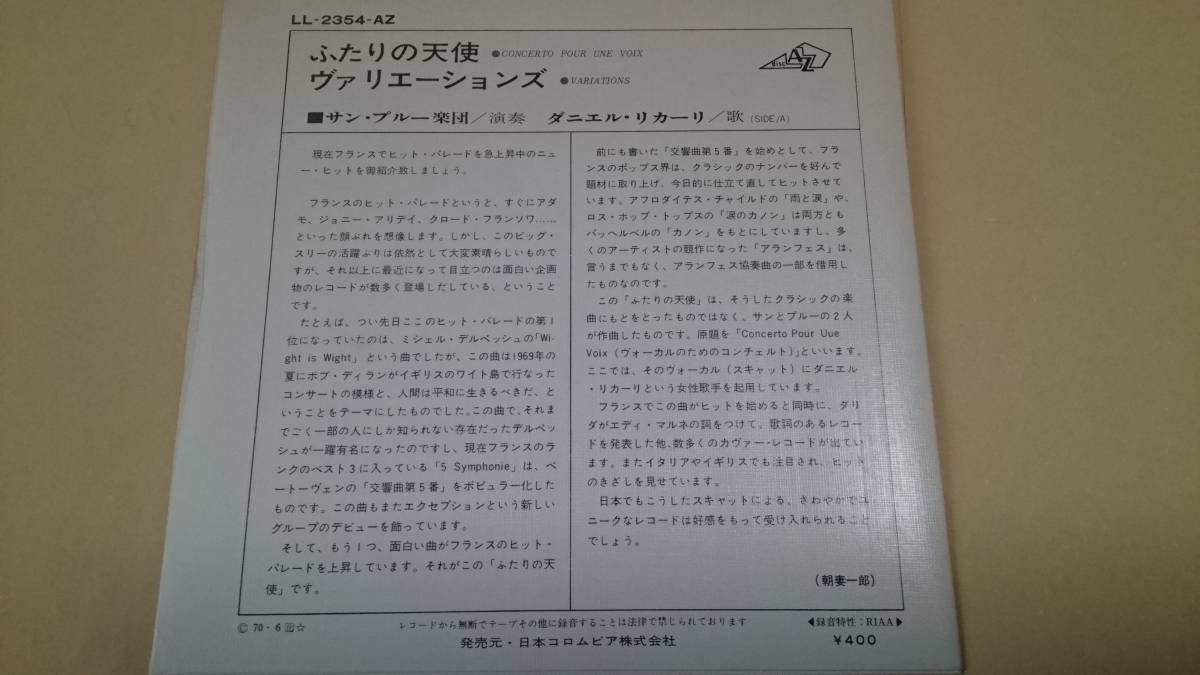 LL-2354-AZ
ふたりの天使 ●CONCERTO POUR UNE VOIX
ヴァリエーションズ ●VARIATIONS
disc AZ
■サン・プルー楽団/演奏 ダニエル・リカーリ/歌(SIDE/A)
現在フランスでヒット・パレードを急上昇中のニュ
ー・ヒットを御紹介致しましょう。
フランスのヒット・パレードというと、すぐにアダ
モ、ジョニー・アリディ、クロード・フランソワ……
といった顔ぶれを想像します。しかし、このビッグ・
スリーの活躍ぶりは依然として大変素晴らしいもので
すが、それ以上に最近になって目立つのは面白い企画
物のレコードが数多く登場しだしている、ということ
です。
たとえば、つい先日ここのヒット・パレードの第1
位になっていたのは、ミシェル・デルペッシュの「Wi-
ght is Wight」という曲でしたが、この曲は1969年の
夏にボブ・ディランがイギリスのワイト島で行なった
コンサートの模様と、人間は平和に生きるべきだ、と
いうことをテーマにしたものでした。この曲で、それま
でごく一部の人にしか知られない存在だったデルペッ
シュが一躍有名になったのですし、現在フランスのラ
ンクのベスト3に入っている「5 Symphonie」は、ベ
ートーヴェンの「交響曲第5番」をポピュラー化した
ものです。この曲もまたエクセプションという新しい
グループのデビューを飾っています。
そして、もう1つ、面白い曲がフランスのヒット・
パレードを上昇しています。それがこの「ふたりの天
使」です。
前にも書いた「交響曲第5番」を始めとして、フラ
ンスのポップス界は、クラシックのナンバーを好んで
題材に取り上げ、今日的に仕立て直してヒットさせて
います。アフロダイテス・チャイルドの「雨と涙」や、
ロス・ポップ・トップスの「涙のカノン」は両方とも
バッヘルベルの「カノン」をもとにしていますし、多
くのアーティストの競作になった「アランフェス」は、
言うまでもなく、アランフェス協奏曲の一部を借用し
たものなのです。
この「ふたりの天使」は、そうしたクラシックの楽
曲にもとをとったものではなく、サンとプルーの2人
が作曲したものです。原題を「Concerto Pour Uue
Voix(ヴォーカルのためのコンチェルト)」といいます。
ここでは、そのヴォーカル(スキャット)にダニエル
・リカーリという女性歌手を起用しています。
フランスでこの曲がヒットを始めると同時に、ダリ
ダがエディ・マルネの詞をつけて、歌詞のあるレコー
ドを発表した他、数多くのカヴァー・レコードが出てい
ます。またイタリアやイギリスでも注目され、ヒット
のきざしを見せています。
日本でもこうしたスキャットによる、さわやかでユ
ニークなレコードは好感をもって受け入れられること
でしょう。
(朝妻一郎)
Ⓒ 70・6 ☆
レコードから無断でテープその他に録音することは法律で禁じられております
◀録音特性:RIAA▶
発売元・日本コロムビア株式会社
¥400